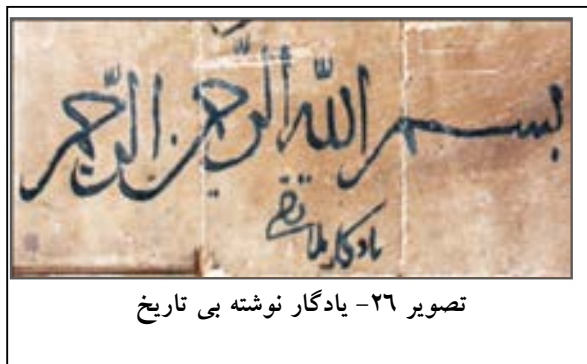 بسم الله الرحمن الرحیم
یادگار ملا تقی
تصویر ٢٦- یادگار نوشته بی تاریخ